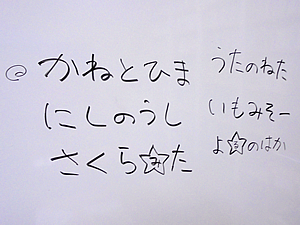 かねとひま
にしのうし
さくら☆た
うたのねた
いもみそー
よ☆のはか